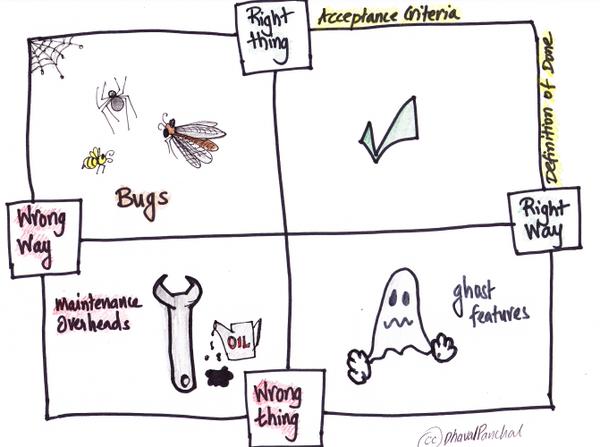 Right
thing
Acceptance Criteria
Definition of Done
Bugs
Wrong
Way
Right
Way
maintenance
overheads
ghost
features
OIL
Wrong
thing
(cc) Dhaval Panchal